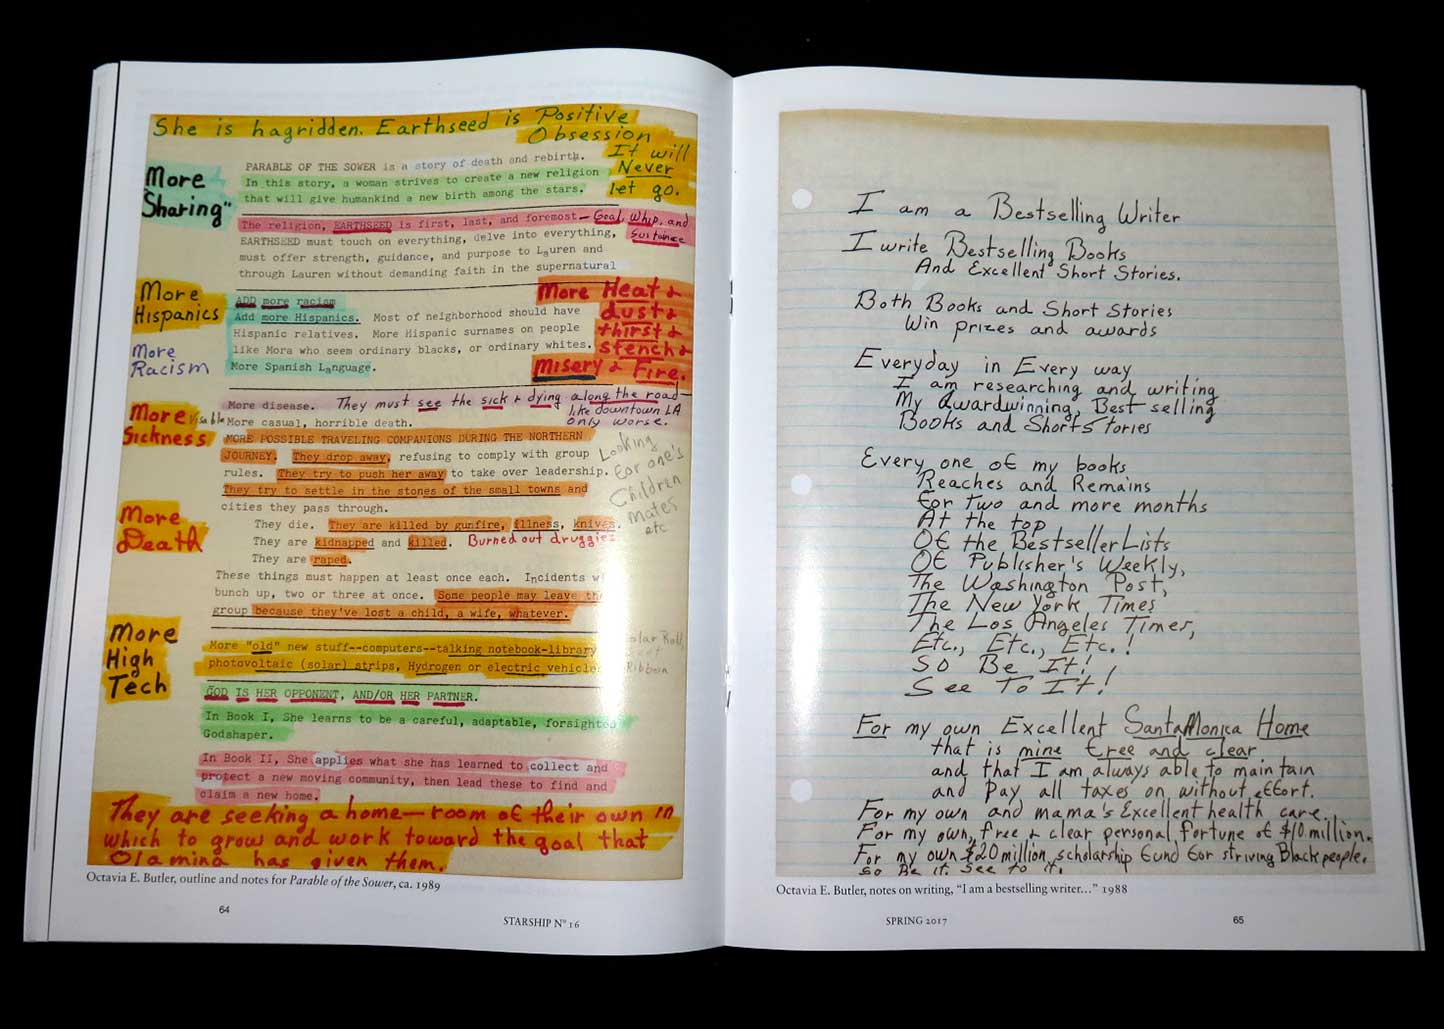 She is hagridden. Earthseed is Positive
Obsession
It will
Never
let go.
More
Sharing"
PARABLE OF THE SOWER is a story of death and rebirth.
In this story, a woman strives to create a new religion
that will give humankind a new birth among the stars.
The religion, EARTHSEED is first, last, and foremost— Goal, Whip, and
Sustaince
EARTHSEED must touch on everything, delve into everything,
must offer strength, guidance, and purpose to Lauren and
through Lauren without demanding faith in the supernatural
More
Hispanics
More
Racism
ADD more racism
Add more Hispanics. Most of neighborhood should have
Hispanic relatives. More Hispanic surnames on people
like Mora who seem ordinary blacks, or ordinary whites.
More Spanish Language.
More Heat &
dust &
thirst &
stench &
Misery & Fire.
More Visable
Sickness
More disease. They must see the sick & dying along the road—
like downtown LA
only worse.
More casual, horrible death.
MORE POSSIBLE TRAVELING COMPANIONS DURING THE NORTHERN
JOURNEY. They drop away, refusing to comply with group
rules. They try to push her away to take over leadership.
They try to settle in the stones of the small towns and
cities they pass through.
Looking
for one's
Children
mates
etc
More
Death
They die. They are killed by gunfire, illness, knives.
They are kidnapped and killed. Burned out druggies
They are raped.
These things must happen at least once each. Incidents
bunch up, two or three at once. Some people may leave the
group because they've lost a child, a wife, whatever.
More
High
Tech
More "old" new stuff--computers--talking notebook-library
photovoltaic (solar) strips, Hydrogen or electric vehicles
Solar Roll,
Ribbon
GOD IS HER OPPONENT, AND/OR HER PARTNER.
In Book I, She learns to be a careful, adaptable, forsighted
Godshaper.
In Book II, She applies what she has learned to collect and
protect a new moving community, then lead these to find and
claim a new home.
They are seeking a home—room of their own in
which to grow and work toward the goal that
Olamina has given them.
Octavia E. Butler, outline and notes for Parable of the Sower, ca. 1989
64
STARSHIP Nº 16
I am a Bestselling Writer
I write Bestselling Books
And Excellent Short Stories.
Both Books and Short Stories
Win prizes and awards
Everyday in Every way
I am researching and writing
My Awardwinning, Best selling
Books and Short Stories
Every one of my books
Reaches and Remains
For two and more months
At the top
Of the Bestseller Lists
Of Publisher's Weekly,
The Washington Post,
The New York Times
The Los Angeles Times,
Etc., Etc., Etc.!
So Be It!
See To It!
For my own Excellent Santa Monica Home
that is mine free and clear
and that I am always able to maintain
and pay all taxes on without effort.
For my own and mama's Excellent health care.
For my own, free & clear personal fortune of $10 million.
For my own $20 million scholarship fund for striving Black people.
So Be it. See to it.
Octavia E. Butler, notes on writing, "I am a bestselling writer..." 1988
SPRING 2017
65